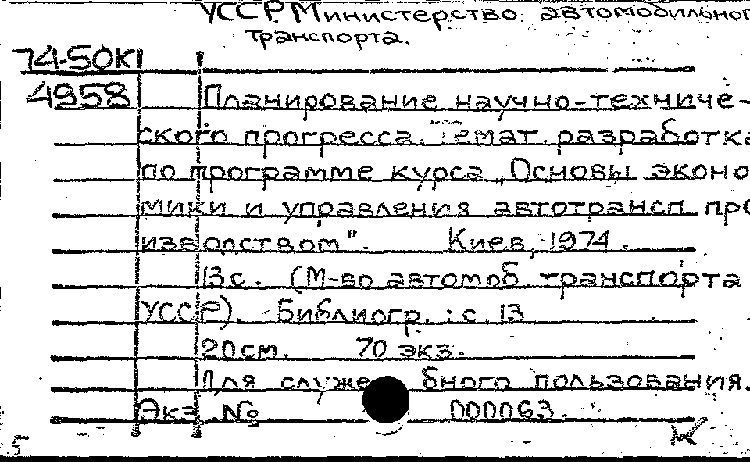 УССР Министерство автомобильного
транспорта.
74-50К
4958 Планирование научно-техниче-
ского прогресса. Темат. разработка
по программе курса „Основы эконо
мики и управления автотрансп. про
изводством". Киев, 1974.
13с. (М-во автомоб. транспорта
УССР). Библиогр.: с. 13
20см. 70 экз.
Для служебного пользования.
Экз № 000063.
5